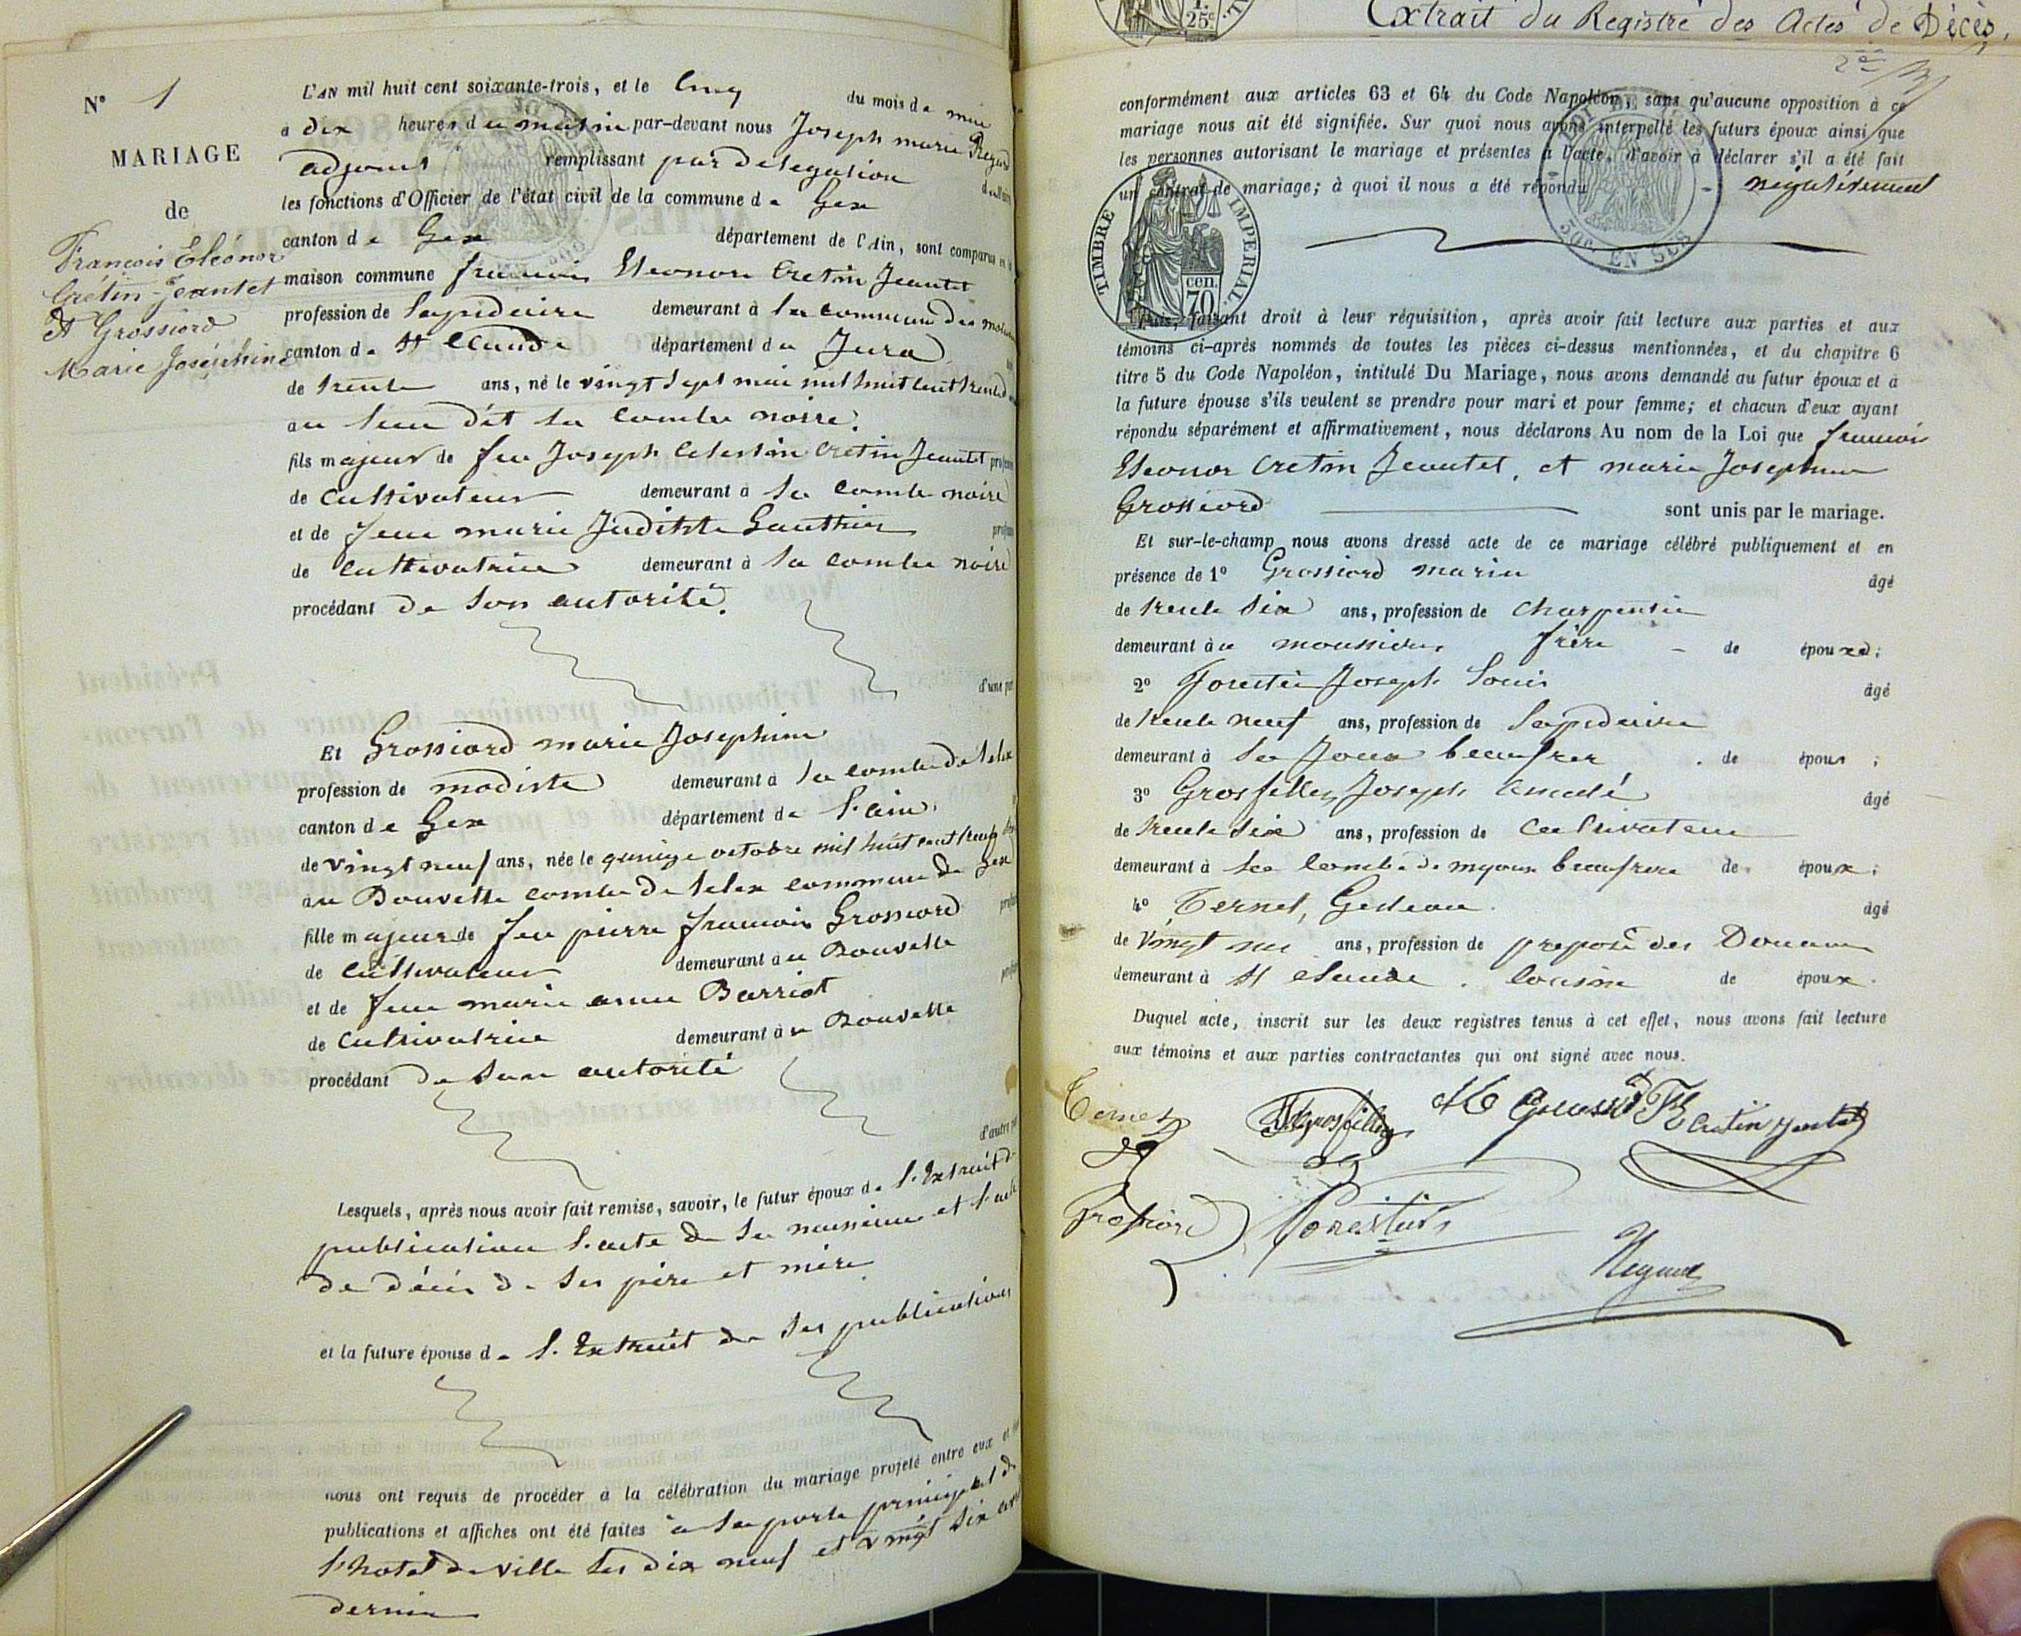 N° 1
MARIAGE
de
François Eléonor
Crétin-Jeantet
et Grossiord
Marie Joséphine
L'AN mil huit cent soixante-trois, et le Cinq du mois de mai
à dix heures du matin par-devant nous Joseph marie Regard
adjoint remplissant par délégation
les fonctions d'Officier de l'état civil de la commune de Gex
canton de Gex département de l'Ain, sont comparus en la
maison commune francois Eleonore Cretin Jeantet
profession de Lapidaire demeurant à la commune des
canton de St Claude département du Jura
de trente ans, né le vingt sept mai mil huit cent trente
au lieu dit la combe noire.
fils majeur de feu Joseph Celestin Cretin Jeantet
de cultivateur demeurant à la combe noire
et de feue marie Judithte Gauthier
de cultivatrice demeurant à la combe noire
procédant de son autorité.
d'une part
Et Grossiord marie Josephine
profession de modiste demeurant à la combe de Lelex
canton de Gex département de l'ain,
de vingt neuf ans, née le quinze octobre mil huit cent trente
au Bouvette combe de Lelex commune de Gex
fille majeure de feu pierre francois Grossiord
de cultivateur demeurant au Bouvette
et de feue marie anne Barriot
de cultivatrice demeurant au Bouvette
procédant de Sune autorité
d'autre part
Lesquels, après nous avoir fait remise, savoir, le futur époux de l'Extrait d
publication l'acte de sa naissance et l'acte
de décès de ses père et mère
et la future épouse de l'Extrait de ses publications
nous ont requis de procéder à la célébration du mariage projeté entre eux et
publications et affiches ont été faites à la porte principale de
l'hotel de ville les dix neuf et vingt six avril
dernier
1.
25c
Extrait du Registre des Actes de Décès,
conformément aux articles 63 et 64 du Code Napoléon, sans qu'aucune opposition à ce
mariage nous ait été signifiée. Sur quoi nous avons interpellé les futurs époux ainsi que
les personnes autorisant le mariage et présentes à l'acte, d'avoir à déclarer s'il a été fait
un contrat de mariage; à quoi il nous a été répondu négativement
TIMBRE IMPERIAL.
cen.
70
50c EN SUS
Puis, faisant droit à leur réquisition, après avoir fait lecture aux parties et aux
témoins ci-après nommés de toutes les pièces ci-dessus mentionnées, et du chapitre 6
titre 5 du Code Napoléon, intitulé Du Mariage, nous avons demandé au futur époux et à
la future épouse s'ils veulent se prendre pour mari et pour femme; et chacun d'eux ayant
répondu séparément et affirmativement, nous déclarons Au nom de la Loi que francois
Eleonor Cretin Jeantet, et marie Josephine
Grossiord sont unis par le mariage.
Et sur-le-champ nous avons dressé acte de ce mariage célébré publiquement et en
présence de 1° Grossiord marin âgé
de trente six ans, profession de charpentier
demeurant au moussières frère de épouse;
2° Forestier Joseph Louis âgé
de trente neuf ans, profession de Lapidaire
demeurant à la Joux beaufrere de époux;
3° Grosfilley Joseph Amedé âgé
de trente six ans, profession de cultivateur
demeurant à la Combe de mijoux beaufrere de époux;
4° Ternet, Gedeon. âgé
de vingt ans, profession de preposé des Douanes
demeurant à St Claude. cousin de époux.
Duquel acte, inscrit sur les deux registres tenus à cet effet, nous avons fait lecture
aux témoins et aux parties contractantes qui ont signé avec nous.
Ternet
Grosfilley
Cretin Jeantet
Grossiord
Forestier
Regard